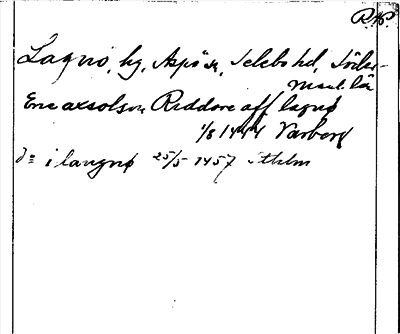 R.AP.
Lagnö, hg, Aspö sn, Selebo hd, Söder-
manl. län
Eric axsolson Riddare aff lagnø
1/8 1444 Varberg
d:o i langnø 25/5 1457 Sthlm